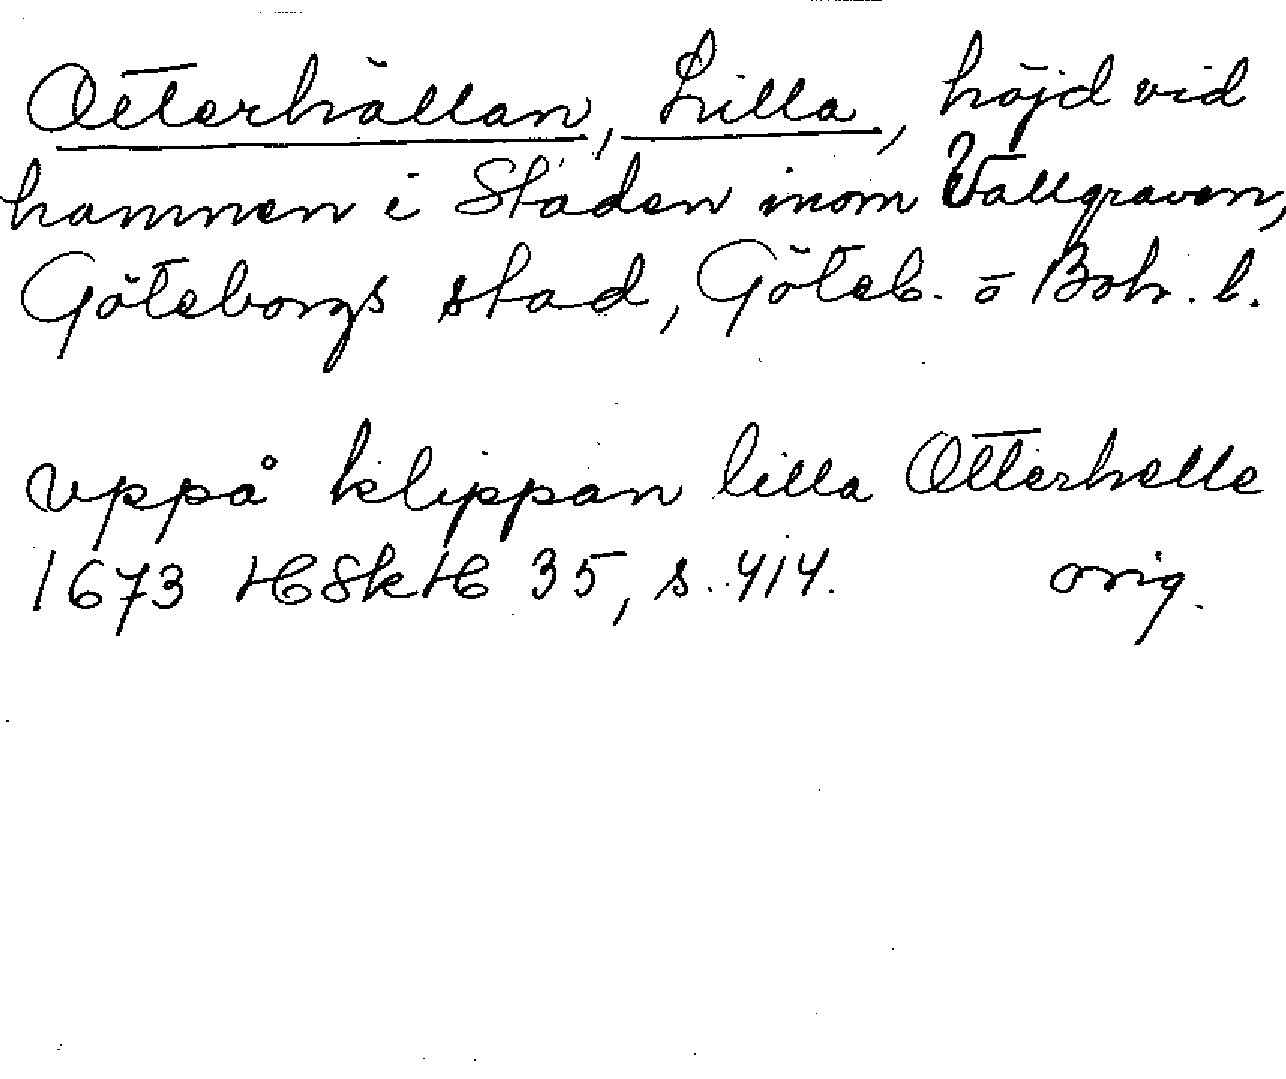 Otterhällan, Lilla, höjd vid
hamnen i Staden inom Vallgraven,
Göteborgs stad, Göteb. o Boh. l.
vppå klippan lilla Otterhelle
1673 HSkH 35, s. 414. orig.